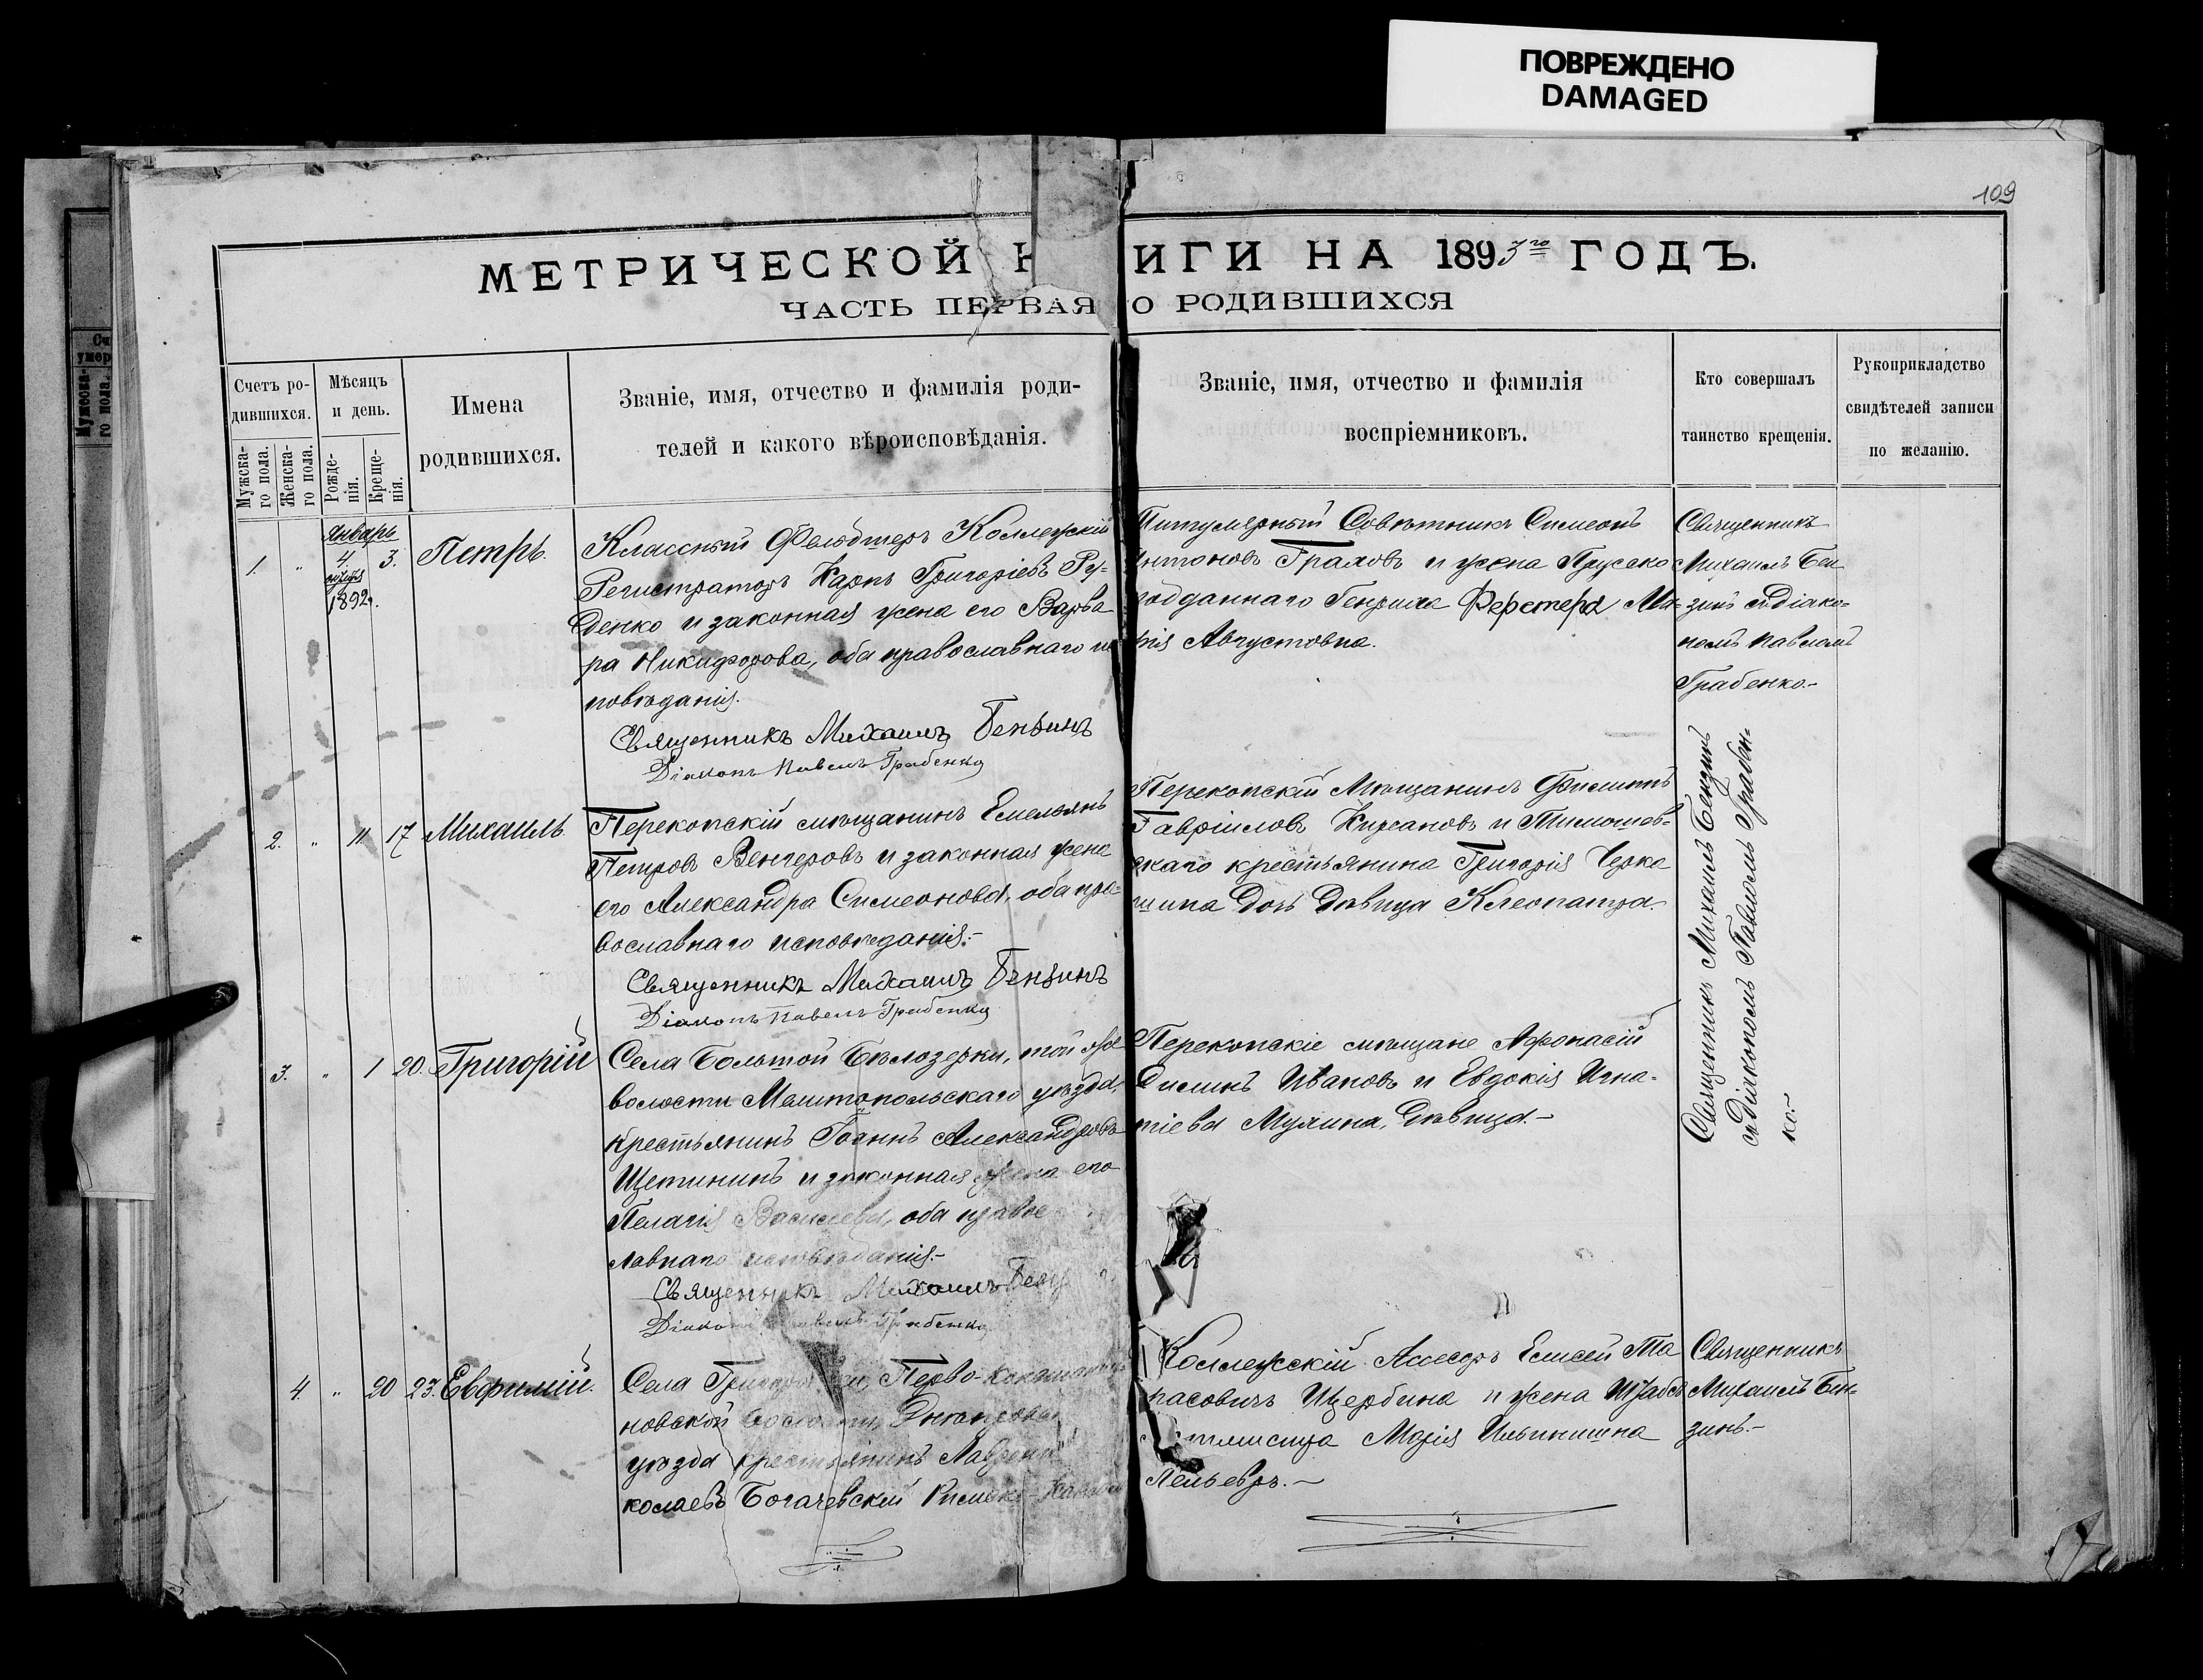 ПОВРЕЖДЕНО
DAMAGED
109
МЕТРИЧЕСКОЙ К ИГИ НА 1893го ГОДЪ.
ЧАСТЬ ПЕРВАЯ О РОДИВШИХСЯ
Счетъ ро-
дившихся.
Мужска-
го пола.
Женска-
го пола.
Мѣсяцъ
и день.
Рожде-
нія.
Креще-
нія.
Имена
родившихся.
Званіе, имя, отчество и фамилія роди-
телей и какого вѣроисповѣданія.
Званіе, имя, отчество и фамилія
воспріемниковъ.
Кто совершалъ
таинство крещенія.
Рукоприкладство
свидѣтелей записи
по желанію.
Январь
1. " 4. 3. Петръ.
1892г.
Классный Фельдшеръ Коллежскій
Регистраторъ Карпъ Григоріевъ Ру-
денко и законная жена его Варва
ра Никифорова, оба православнаго ис
повѣданія.
Священникъ Михаилъ Бензинъ
Діаконъ Павелъ Грабенко
Титулярный Совѣтникъ Симеонъ
Антоновъ Граховъ и жена Прусско
подданнаго Генриха Ферстера Ма-
рія Августовна.
Священникъ
Михаилъ Бен
зинъ съ діако-
номъ Павломъ
Грабенко.-
2. " 11 17 Михаилъ.
Перекопскій мѣщанинъ Емельянъ
Петровъ Венгеровъ и законная жена
его Александра Симеонова, оба пра-
вославнаго исповѣданія.-
Священникъ Михаилъ Бензинъ
Діаконъ Павелъ Грабенко
Перекопскій Мѣщанинъ Филиппъ
Гавріиловъ Кирсановъ и Тимошев-
скаго крестьянина Григорія Черка
шина дочь дѣвица Клеопатра.
Священникъ Михаилъ Бензинъ
съ Діакономъ Павломъ Грабен-
ко.-
3. " 1 20. Григорій
Села Большой Бѣлозерки, той же
волости Мелитопольскаго уѣзда,
крестьянинъ Іоаннъ Александровъ
Щетининъ и законная жена его
Пелагія Васильева, оба правос
лавнаго исповѣданія.-
Священникъ Михаилъ Бенз
Діаконъ Павелъ Грабенко
Перекопскіе мѣщане Афонасій
Силинъ Ивановъ и Евдокія Игна-
тіева Мухина, дѣвица.-
4 " 20 23. Евфимій.
Села Перво-Константи
новской волости, Днѣпровск
уѣзда крестьянинъ
колаевъ Богачевскій Римско-Католи
Коллежскій Асесоръ Елисей Та
расовичъ Щербина и жена Штабсъ
Марія Ильинишна
Священникъ
Михаилъ Бен-
зинъ.-